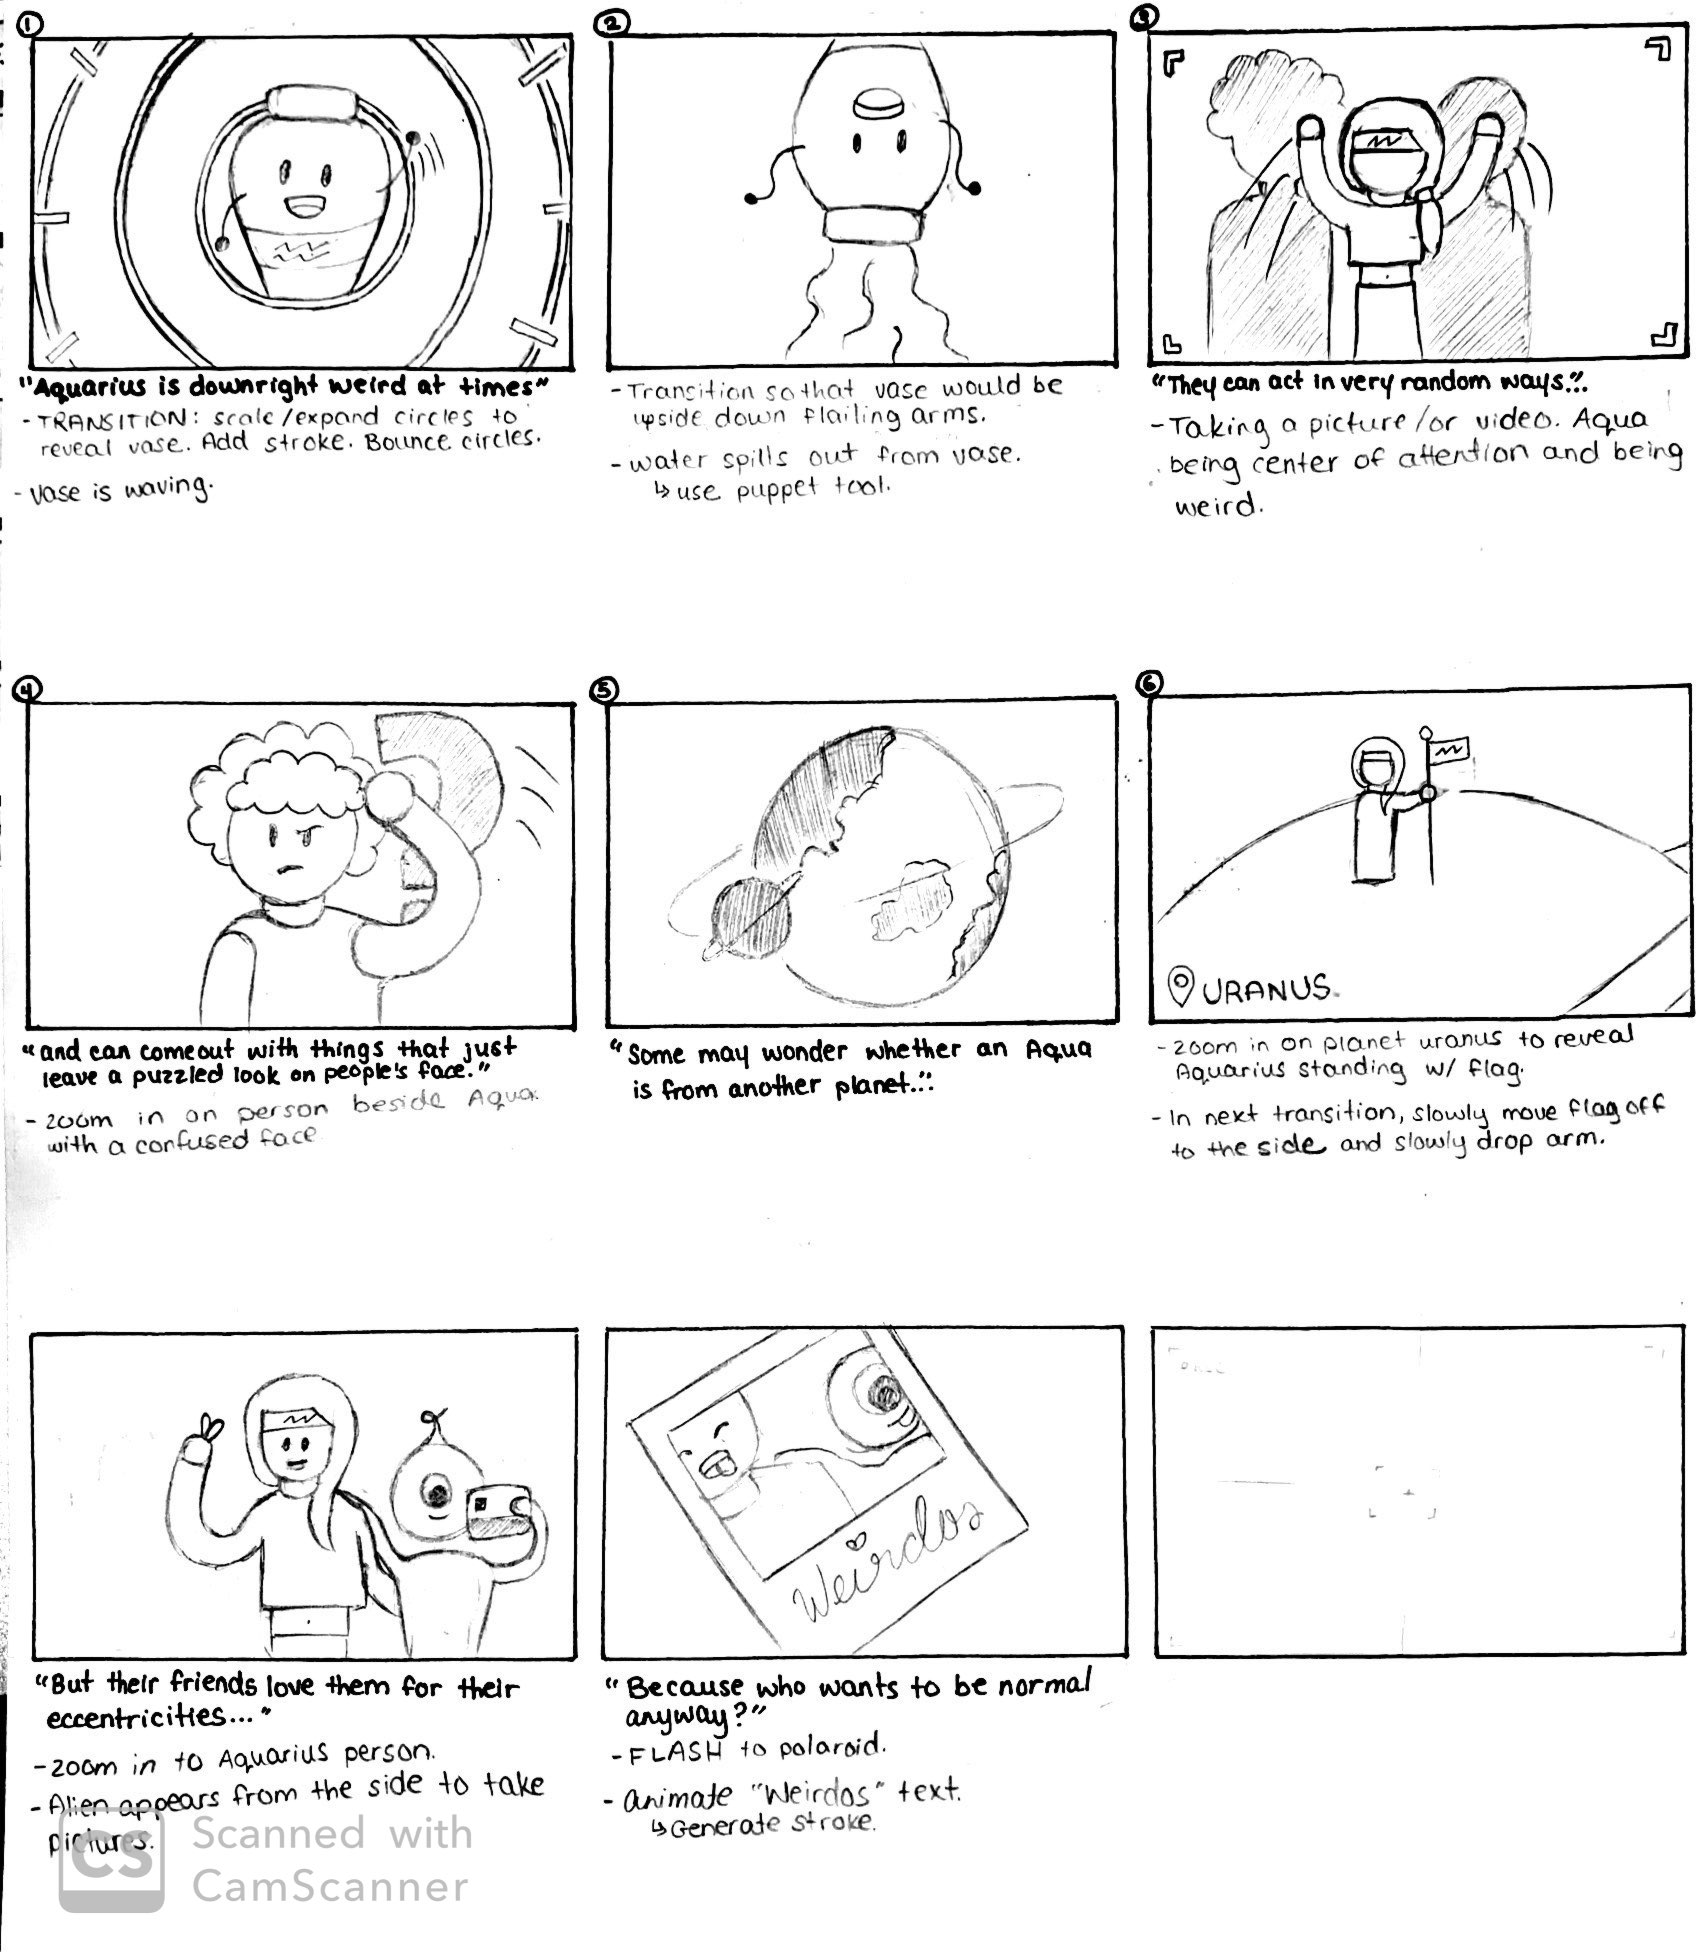 1
"Aquarius is downright weird at times"
- TRANSITION: scale/expand circles to
reveal vase. Add stroke. Bounce circles.
- vase is waving.
2
- Transition so that vase would be
upside down flailing arms.
- water spills out from vase.
↳ use puppet tool.
3
"They can act in very random ways..."
- Taking a picture/or video. Aqua
being center of attention and being
weird.
4
"and can come out with things that just
leave a puzzled look on people's face."
- zoom in on person beside Aqua.
with a confused face
5
"Some may wonder whether an Aqua
is from another planet..."
6
URANUS.
- zoom in on planet uranus to reveal
Aquarius standing w/ flag.
- In next transition, slowly move flag off
to the side and slowly drop arm.
"But their friends love them for their
eccentricities..."
- zoom in to Aquarius person.
- Alien appears from the side to take
pictures.
Weirdos
"Because who wants to be normal
anyway?"
- FLASH to polaroid.
- Animate "Weirdos" text.
↳ Generate stroke.
CS
Scanned with
CamScanner